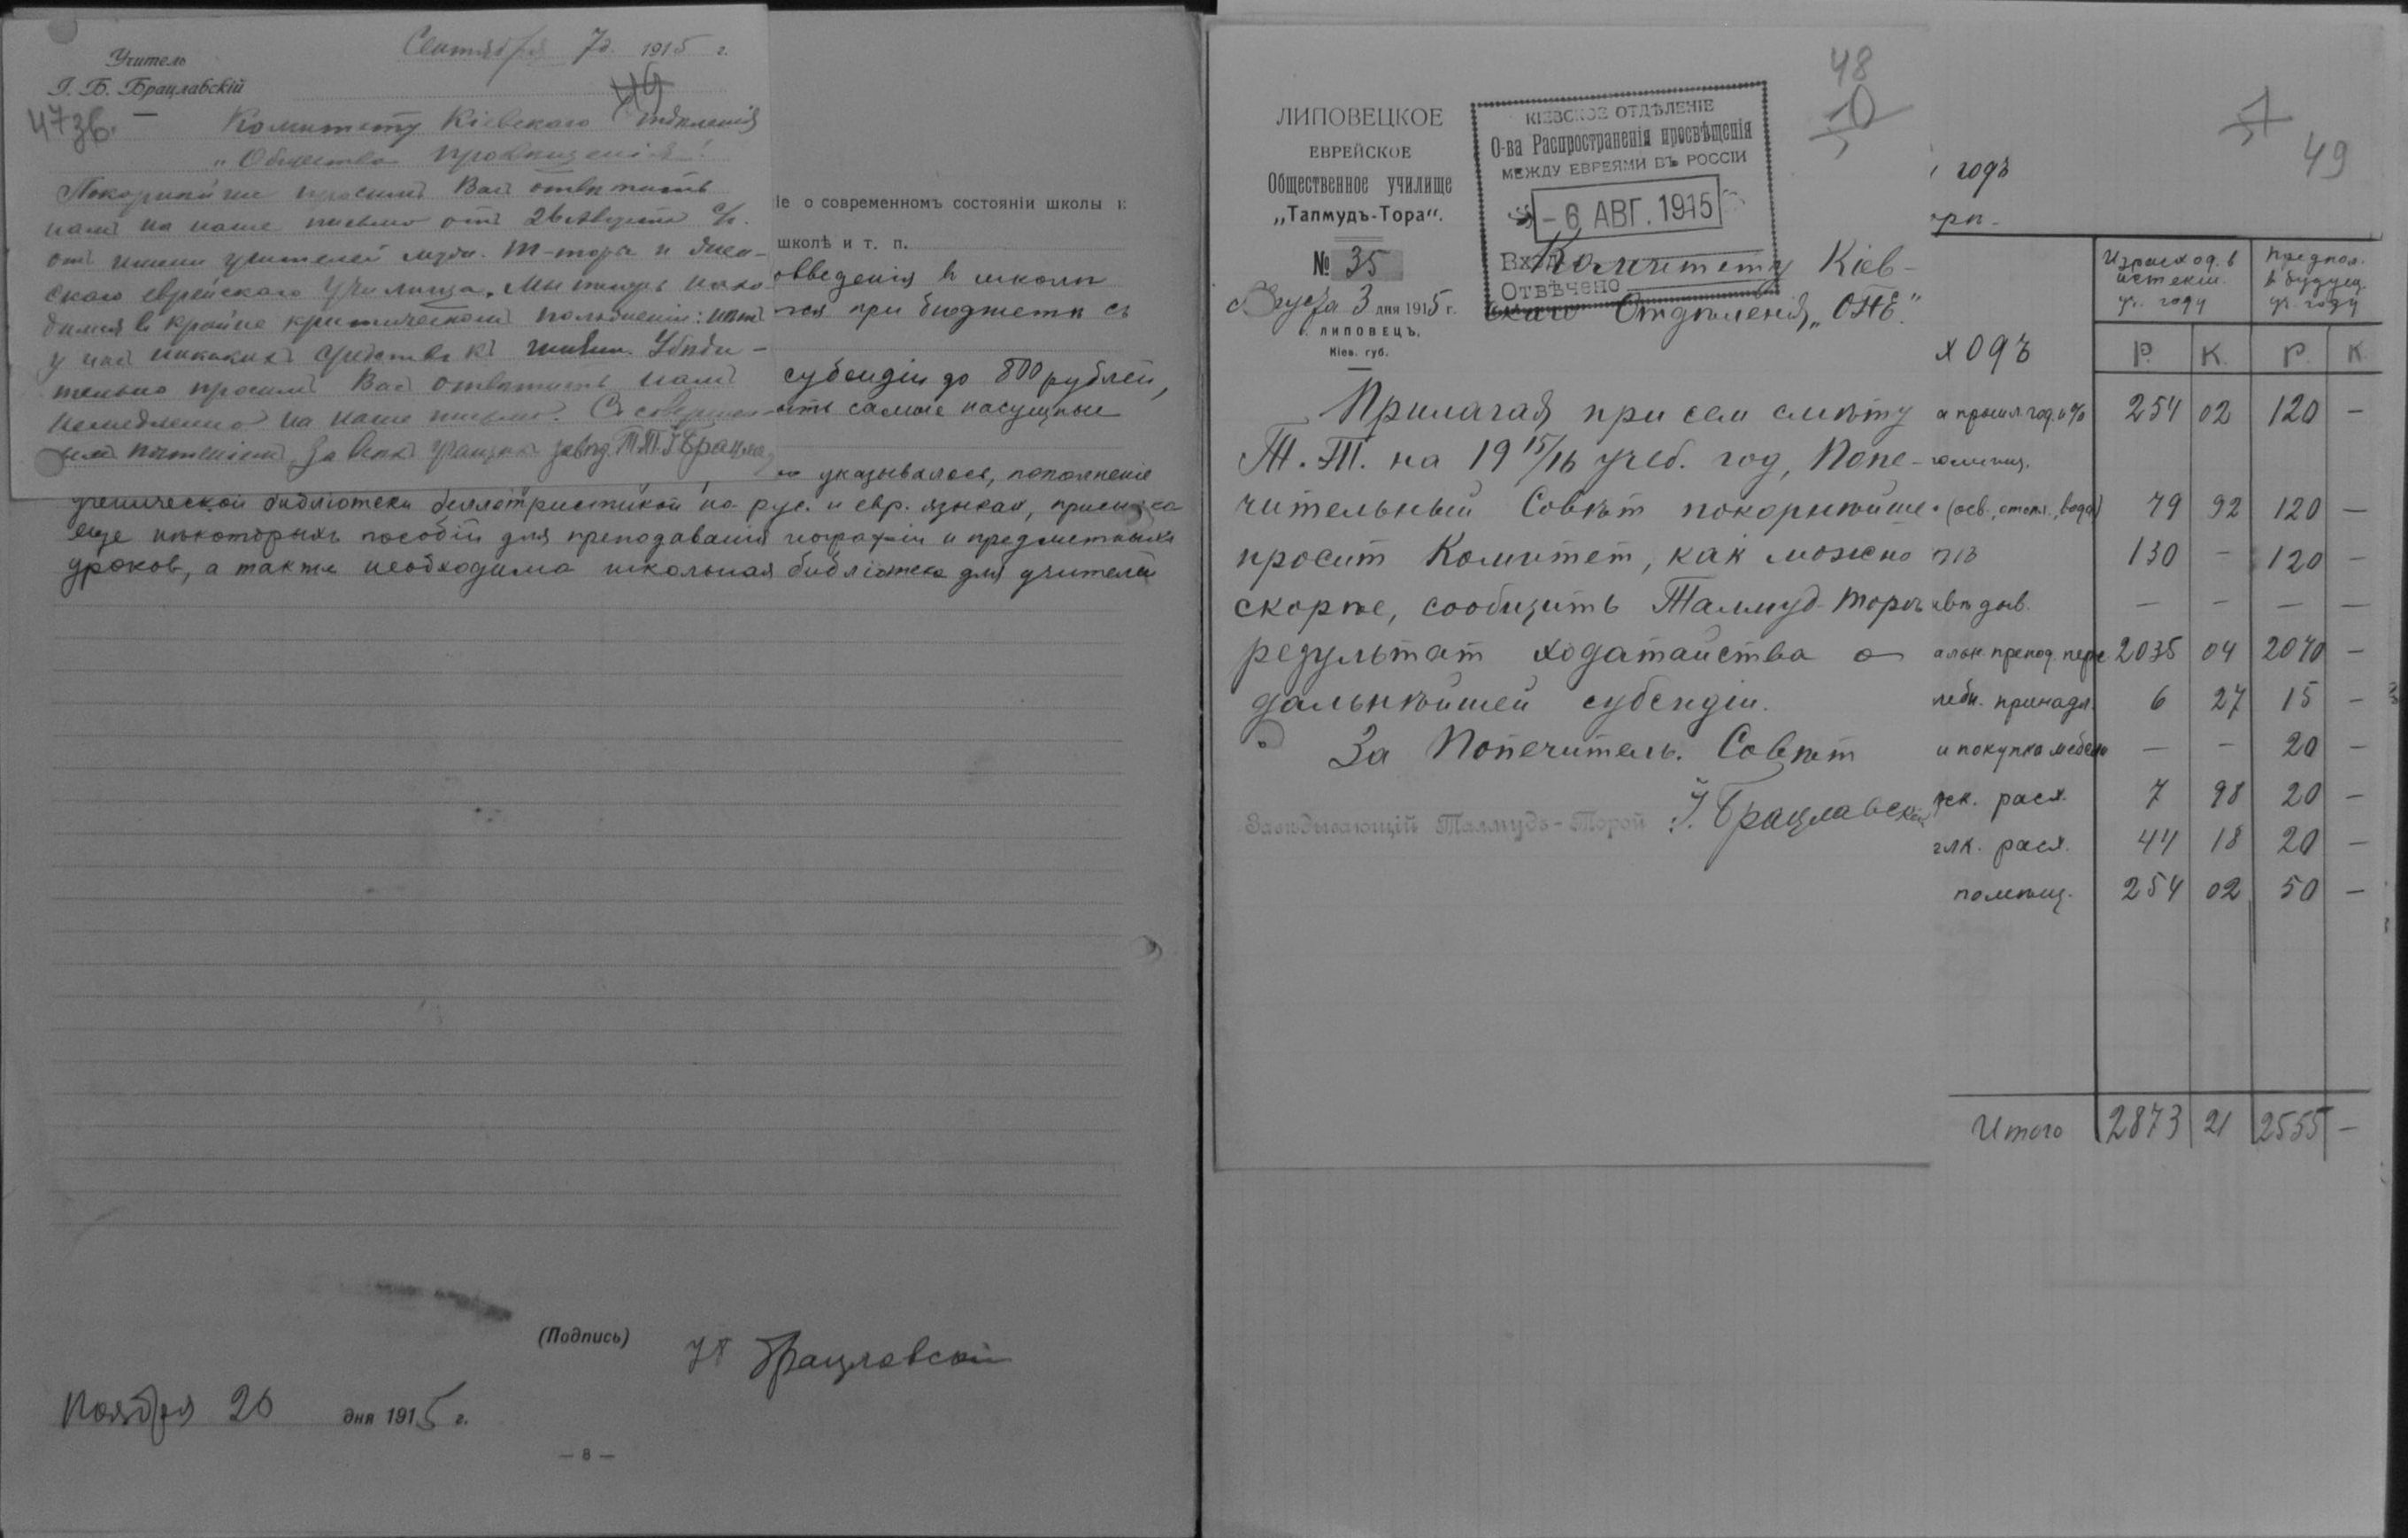 Учитель
І. Б. Брацлавскій
Сентября 7д. 1915 г.
49
473б.
Комитету Кіевскаго Отдѣленія
„Общества просвѣщенія“.
Покорнѣйше просимъ Васъ отвѣтить
намъ на наше письмо отъ 26 Августа с/г.
отъ имени учителей мѣстн. Т-торы и
скаго еврейскаго училища. Мы теперь нахо-
димся въ крайне критическомъ положеніи: нѣтъ
у насъ никакихъ средствъ къ жизни. Убѣди-
тельно просимъ Васъ отвѣтить намъ
немедленно на наше письмо. Съ совершен-
нымъ почтеніемъ, завѣд. Т.Т. І Брацлав
іе о современномъ состояніи школы и
школѣ и т. п.
оввденія в школѣ
тся при бюджетѣ съ
субсидіи до 800 рублей,
ить самые насущные
указывалось, пополненіе
ученической библіотеки беллетристикой на рус. и евр. языкахъ, приемка
еще нѣкоторыхъ пособій для преподаванія географіи и предметныхъ
уроков, а также необходима школьная библіотека для учителей
(Подпись) ІБ Брацлавскій
Ноября 20 дня 1915 г.
— 8 —
ЛИПОВЕЦКОЕ
ЕВРЕЙСКОЕ
Общественное училище
„Талмудъ-Тора“.
№ 35
Августа 3 дня 1915 г.
г. ЛИПОВЕЦЪ.
Кіев. губ.
КІЕВСКОЕ ОТДѢЛЕНІЕ
О-ва Распространенія просвѣщенія
МЕЖДУ ЕВРЕЯМИ ВЪ РОССІИ
- 6 АВГ. 1915
Вход
Отвѣчено
48
50
Комитету Кіев-
скаго Отдѣленія „ОПЕ“.
Прилагая при сем смѣту
Т.-Т. на 19 15/16 учеб. год, Попе-
чительный Совѣт покорнѣйше
просит Комитет, как можно
скорѣе, сообщить Талмуд-Торѣ
результат ходатайства о
дальнѣйшей субсидіи.
За Попечитель. Совѣт
Завѣдывающій Талмудъ-Торой І. Брацлавскій
51
49
годъ
оры-
Израсход. в истекш. уч. году
Предпол. в будущ. уч. году
ходъ Р. К. Р. К.
а прошл. год. и % 254 02 120 —
помѣщ.
(осв., отопл., вода) 79 92 120 —
130 — 120 —
завѣдыв. — — — —
альн. препод. перс. 2035 04 2070 —
чебн. принадл. 6 27 15 —
и покупка мебели — — 20 —
ск. расх. 7 98 20 —
елк. расх. 44 18 20 —
помѣщ. 254 02 50 —
Итого 2873 21 2555 —